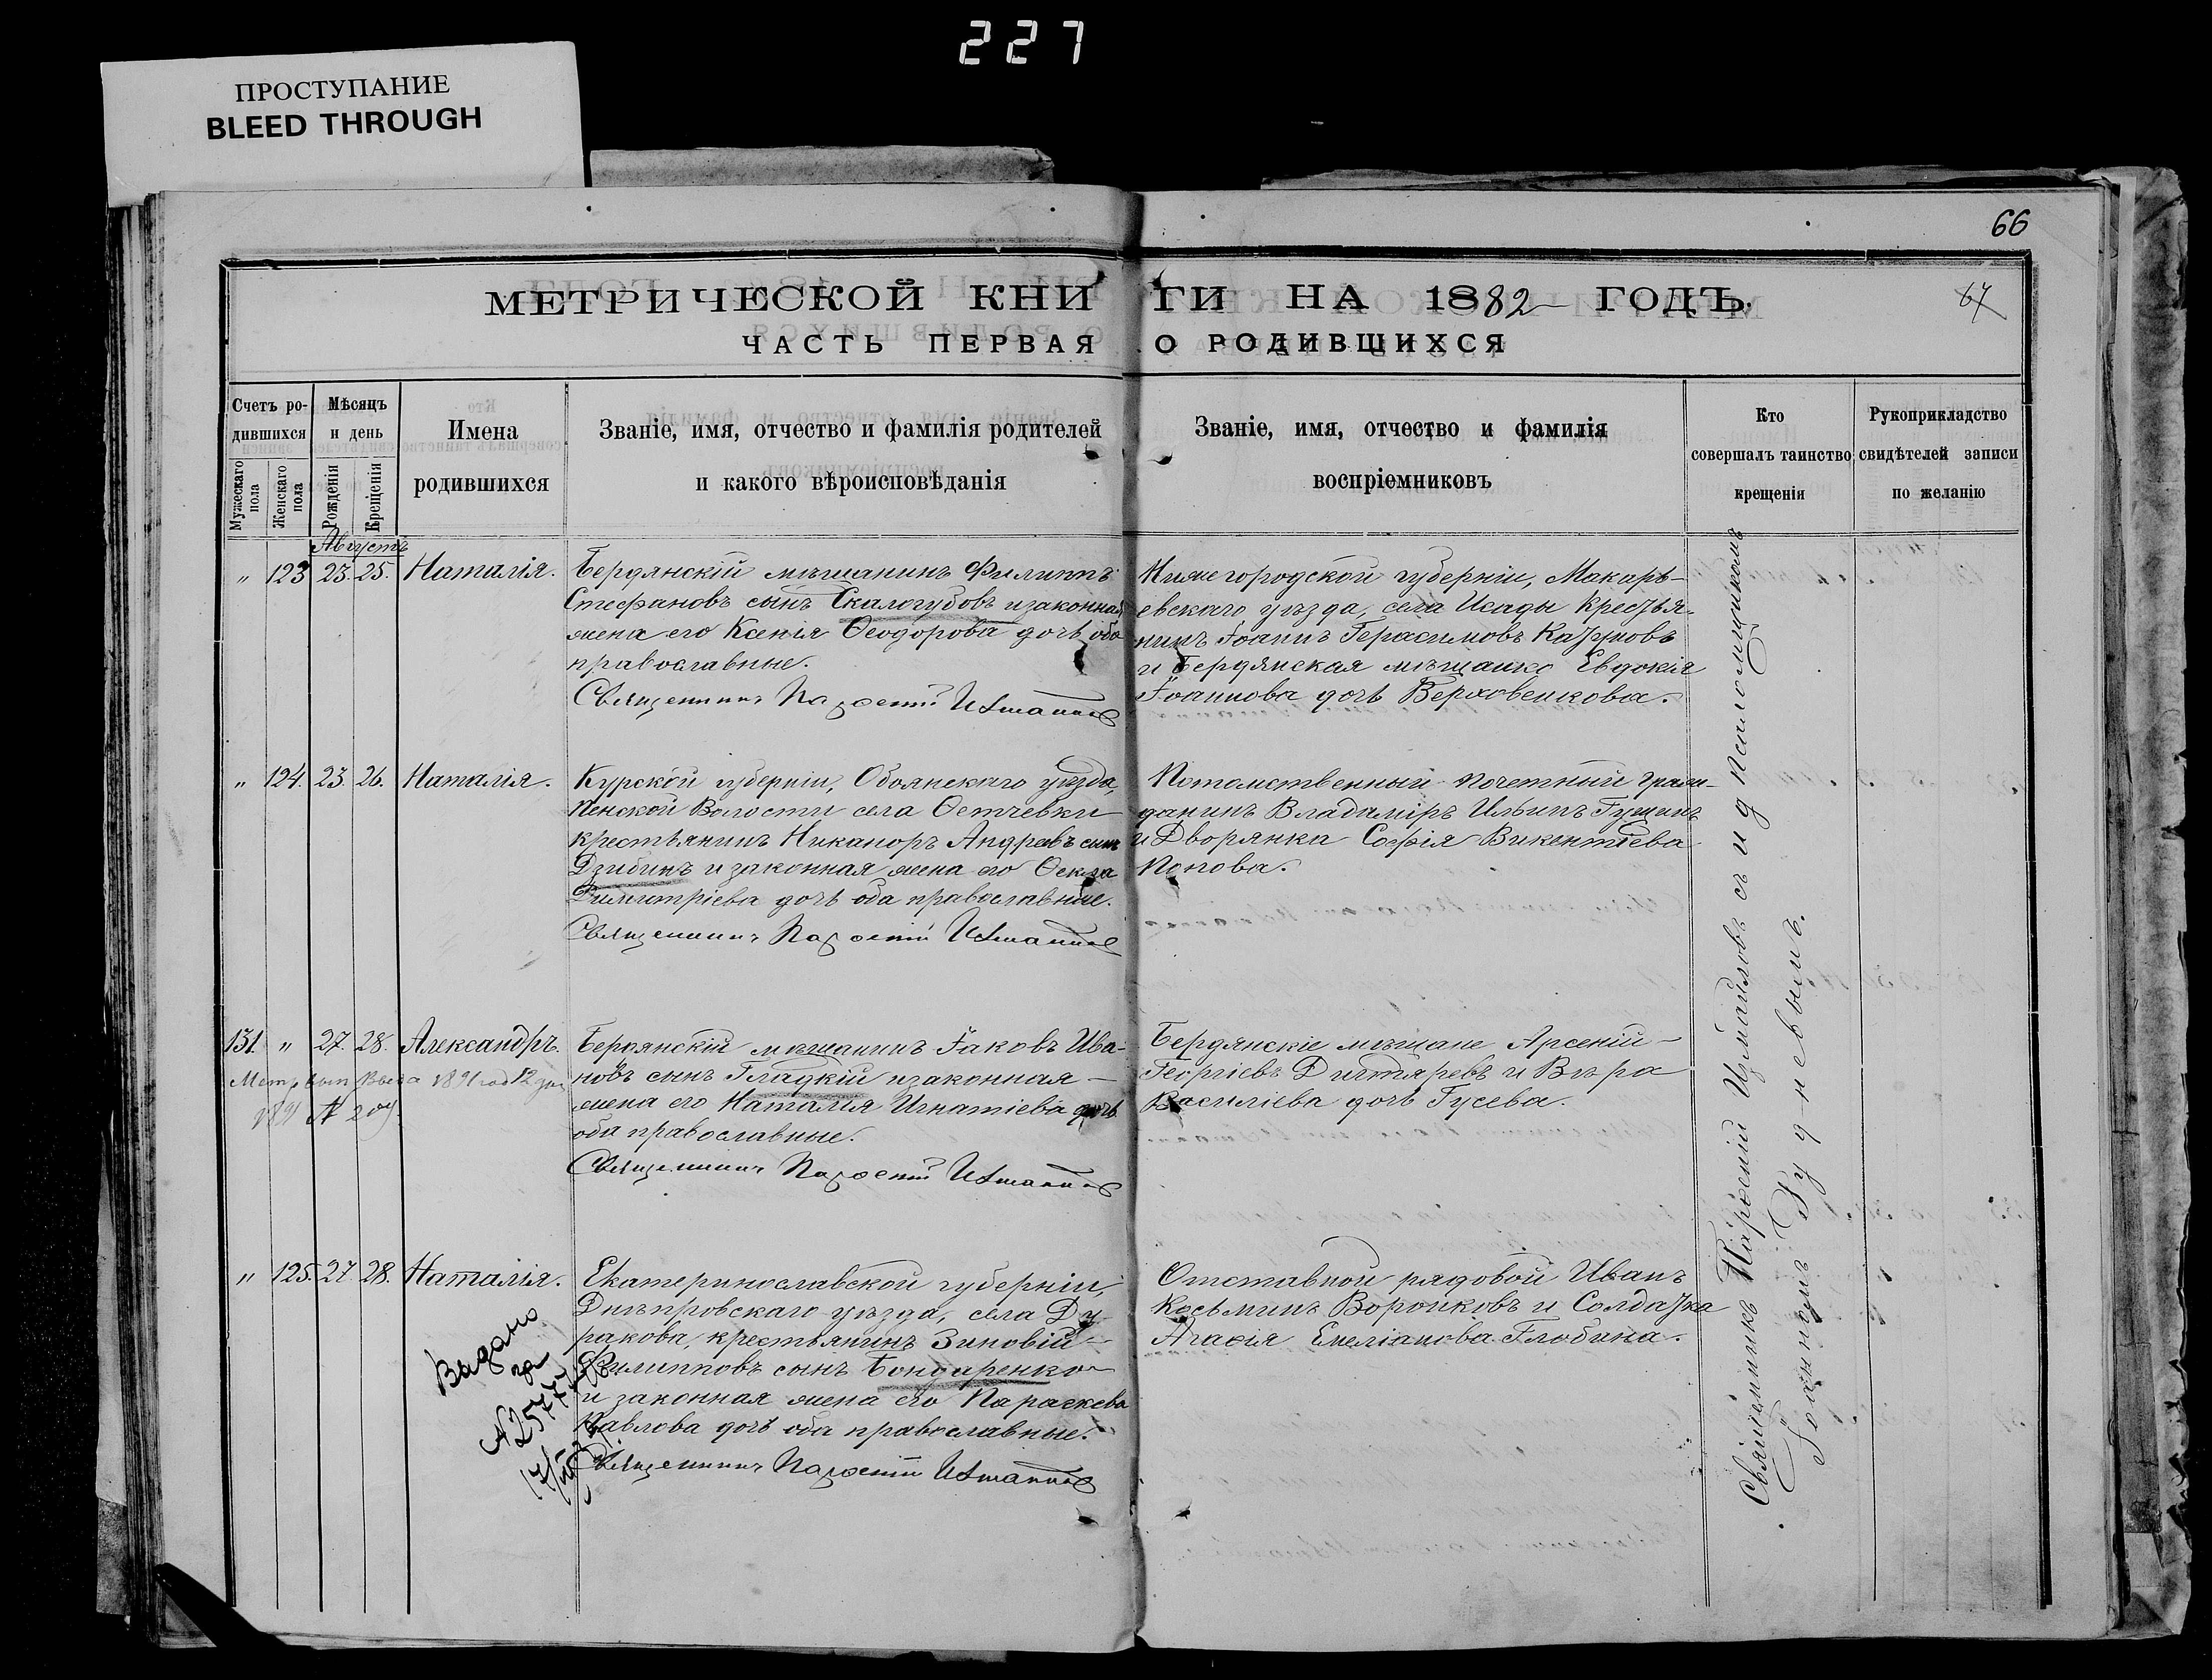 227
ПРОСТУПАНИЕ
BLEED THROUGH
66
МЕТРИЧЕСКОЙ КНИГИ НА 1882 ГОДЪ,
67
ЧАСТЬ ПЕРВАЯ О РОДИВШИХСЯ
Счетъ ро-
дившихся
Мужескаго пола
Женскаго пола
Мѣсяцъ
и день
Рожденія
Крещенія
Имена
родившихся
Званіе, имя, отчество и фамилія родителей
и какого вѣроисповѣданія
Званіе, имя, отчество и фамилія
воспріемниковъ
Кто
совершалъ таинство
крещенія
Рукоприкладство
свидѣтелей записи
по желанію
Августъ
" 123 23. 25. Наталія.
Бердянскій мѣщанинъ Филиппъ
Стефановъ сынъ Скалогубовъ и законная
жена его Ксенія Ѳеодорова дочь оба
православные.
Священникъ Парѳеній Измаиловъ
Нижегородской губерніи, Макарь-
евскаго уѣзда, села Исады крестья-
нинъ Іоаннъ Герасимовъ
и Бердянская мѣщанка Евдокія
Іоаннова дочь Верховенкова.
" 124. 23. 26. Наталія.
Курской губерніи, Обоянскаго уѣзда,
Пенской Волости села
крестьянинъ Никаноръ Андреевъ сынъ
Дзибинъ и законная жена его Ѳекла
Димитріева дочь оба православные.
Священникъ Парѳеній Измаиловъ
Потомственный почетный граж-
данинъ Владиміръ Ильинъ Гущинъ
и Дворянка Софія Викентіева
Попова.
131. " 27. 28. Александръ.
Метр. вып. 1891 год 12
1891 №
Бердянскій мѣщанинъ Іаковъ Ива-
новъ сынъ Гладкій и законная
жена его Наталія Игнатіева дочь
оба православные.
Священникъ Парѳеній Измаиловъ
Бердянскіе мѣщане Арсеній
Георгіевъ Дигтяревъ и Вѣра
Василіева дочь Гусева.
" 125. 27. 28. Наталія.
Выдано
за
№ 2577
17/III
Екатеринославской губерніи,
Днѣпровскаго уѣзда, села Ду-
ракова, крестьянинъ Зиновій
Филипповъ сынъ Бондаренко
и законная жена его Параскева
Павлова дочь оба православные.
Священникъ Парѳеній Измаиловъ
Отставной рядовой Иванъ
Косьминъ Воронковъ и Солдатка
Агаѳія Емеліанова Глобина.
Священникъ Парѳеній Измаиловъ съ и д псаломщикомъ
Іоанномъ Рудневымъ.